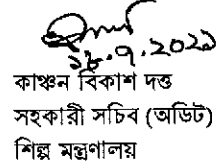 ২৮.৭.২০২১
কাঞ্চন বিকাশ দত্ত
সহকারী সচিব (অডিট)
শিল্প মন্ত্রণালয়